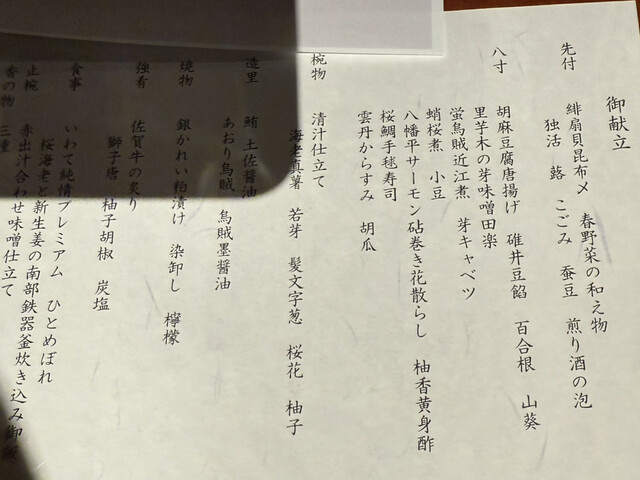 御献立
先付
緋扇貝昆布〆 春野菜の和え物
独活 蕗 こごみ 蚕豆 煎り酒の泡
八寸
胡麻豆腐唐揚げ 碓井豆餡 百合根 山葵
里芋木の芽味噌田楽
蛍烏賊近江煮 芽キャベツ
蛸桜煮 小豆
八幡平サーモン砧巻き花散らし 柚香黄身酢
桜鯛手毬寿司
雲丹からすみ 胡瓜
椀物
清汁仕立て
海老真薯 若芽 髪文字葱 桜花 柚子
造里
鮪 土佐醤油
あおり烏賊 烏賊墨醤油
焼物
銀かれい粕漬け 染卸し 檸檬
強肴
佐賀牛の炙り
獅子唐 柚子胡椒 炭塩
食事
いわて純情プレミアム ひとめぼれ
桜海老と新生姜の南部鉄器釜炊き込み御飯
止椀
赤出汁合わせ味噌仕立て
香の物
三種